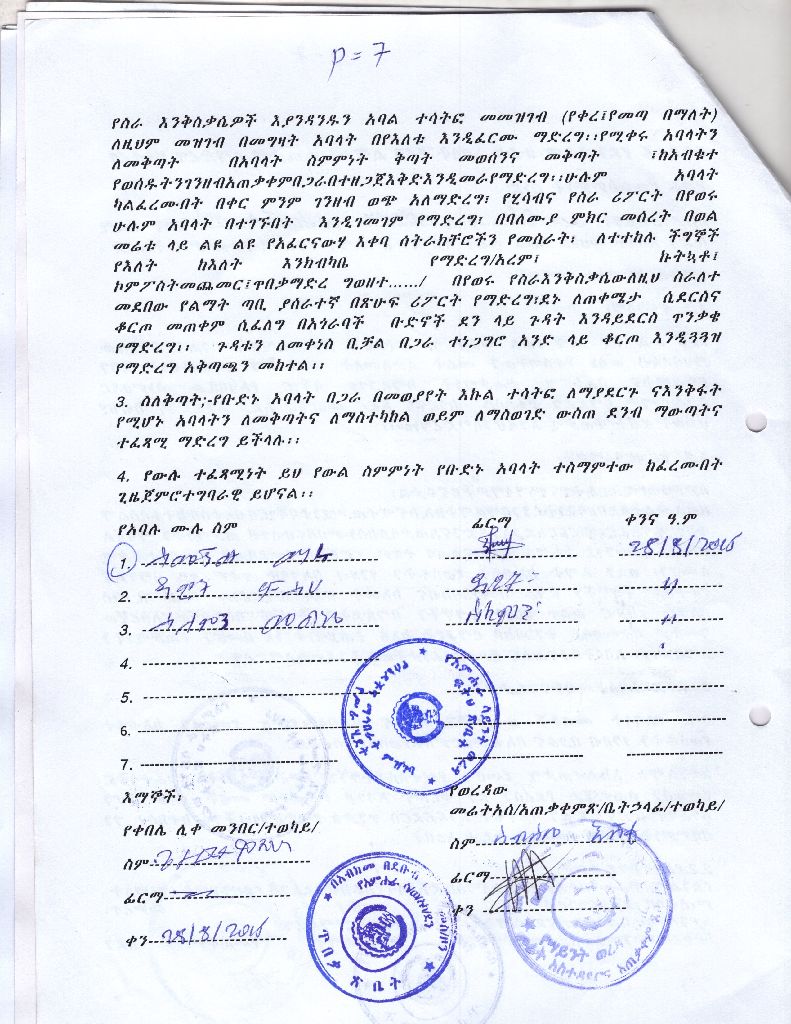 p = 7
የስራ እንቅስቃሴዎች እያንዳንዱን አባል ተሳትፎ መመዝገብ (የቀረ፤የመጣ በማለት)
ለዚህም መዝገብ በመግዛት አባላት በየእለቱ እንዲፈርሙ ማድረግ፡፡የሚቀሩ አባላትን
ለመቅጣት በአባላት ስምምነት ቅጣት መወሰንና መቅጣት ፣ከአብቁተ
የወሰዱትንገንዘብአጠቃቀምበጋራበተዘጋጀእቅድእንዲመራየማድረግ፡፡ሁሉም አባላት
ካልፈረሙበት በቀር ምንም ገንዘብ ወጭ አለማድረግ፣ የሂሳብና የስራ ሪፖርት በየወሩ
ሁሉም አባላት በተገኙበት እንዲገመገም የማድረግ፣ በባለሙያ ምክር መሰረት በወል
መሬቱ ላይ ልዩ ልዩ የአፈርናውሃ እቀባ ሰትራክቸሮችን የመስራት፣ ለተተከሉ ችግኞች
የእለት ከእለት እንክብካቤ የማድረግ/አረም፣ ኩትኳቶ፣
ኮምፖስትመጨመር፣ጥበቃማድረ ግወዘተ....../ በየወሩ የስራእንቅስቃሴውለዚህ ስራለተ
መደበው የልማት ጣቢ ያሰራተኛ በጽሁፍ ሪፖርት የማድረግ፣ደኑ ለጠቀሜታ ሲደርስና
ቆርጦ መጠቀም ሲፈለግ በአጎራባች ቡድኖች ደን ላይ ጉዳት እንዳይደርስ ጥንቃቄ
የማድረግ፡፡ ጉዳቱን ለመቀነስ ቢቻል በጋራ ተነጋግሮ አንድ ላይ ቆርጦ እንዲጓጓዝ
የማድረግ አቅጣጫን መከተል፡፡
3. ስለቅጣት;-የቡድኑ አባላት በጋራ በመወያየት እኩል ተሳትፎ ለማያደርጉ ናእንቅፋት
የሚሆኑ አባላትን ለመቅጣትና ለማስተካከል ወይም ለማስወገድ ውስጠ ደንብ ማውጣትና
ተፈጻሚ ማድረግ ይችላሉ፡፡
4. የውሉ ተፈጻሚነት ይህ የውል ስምምነት የቡድኑ አባላት ተስማምተው ከፈረሙበት
ጊዜጀምሮተግባራዊ ይሆናል፡፡
የአባሉ ሙሉ ስም ፊርማ ቀንና ዓ.ም
1. 28/8/2015
2. "
3. ሰለሞን "
4.
5.
6.
7.
እማኞች፡
የቀበሌ ሊቀ መንበር/ተወካይ/
ስም
ፊርማ
ቀን 28/8/2015
የወረዳው
መሬትአስ/አጠቃቀምጽ/ቤትኃላፊ/ተወካይ/
ስም
ፊርማ
ቀን